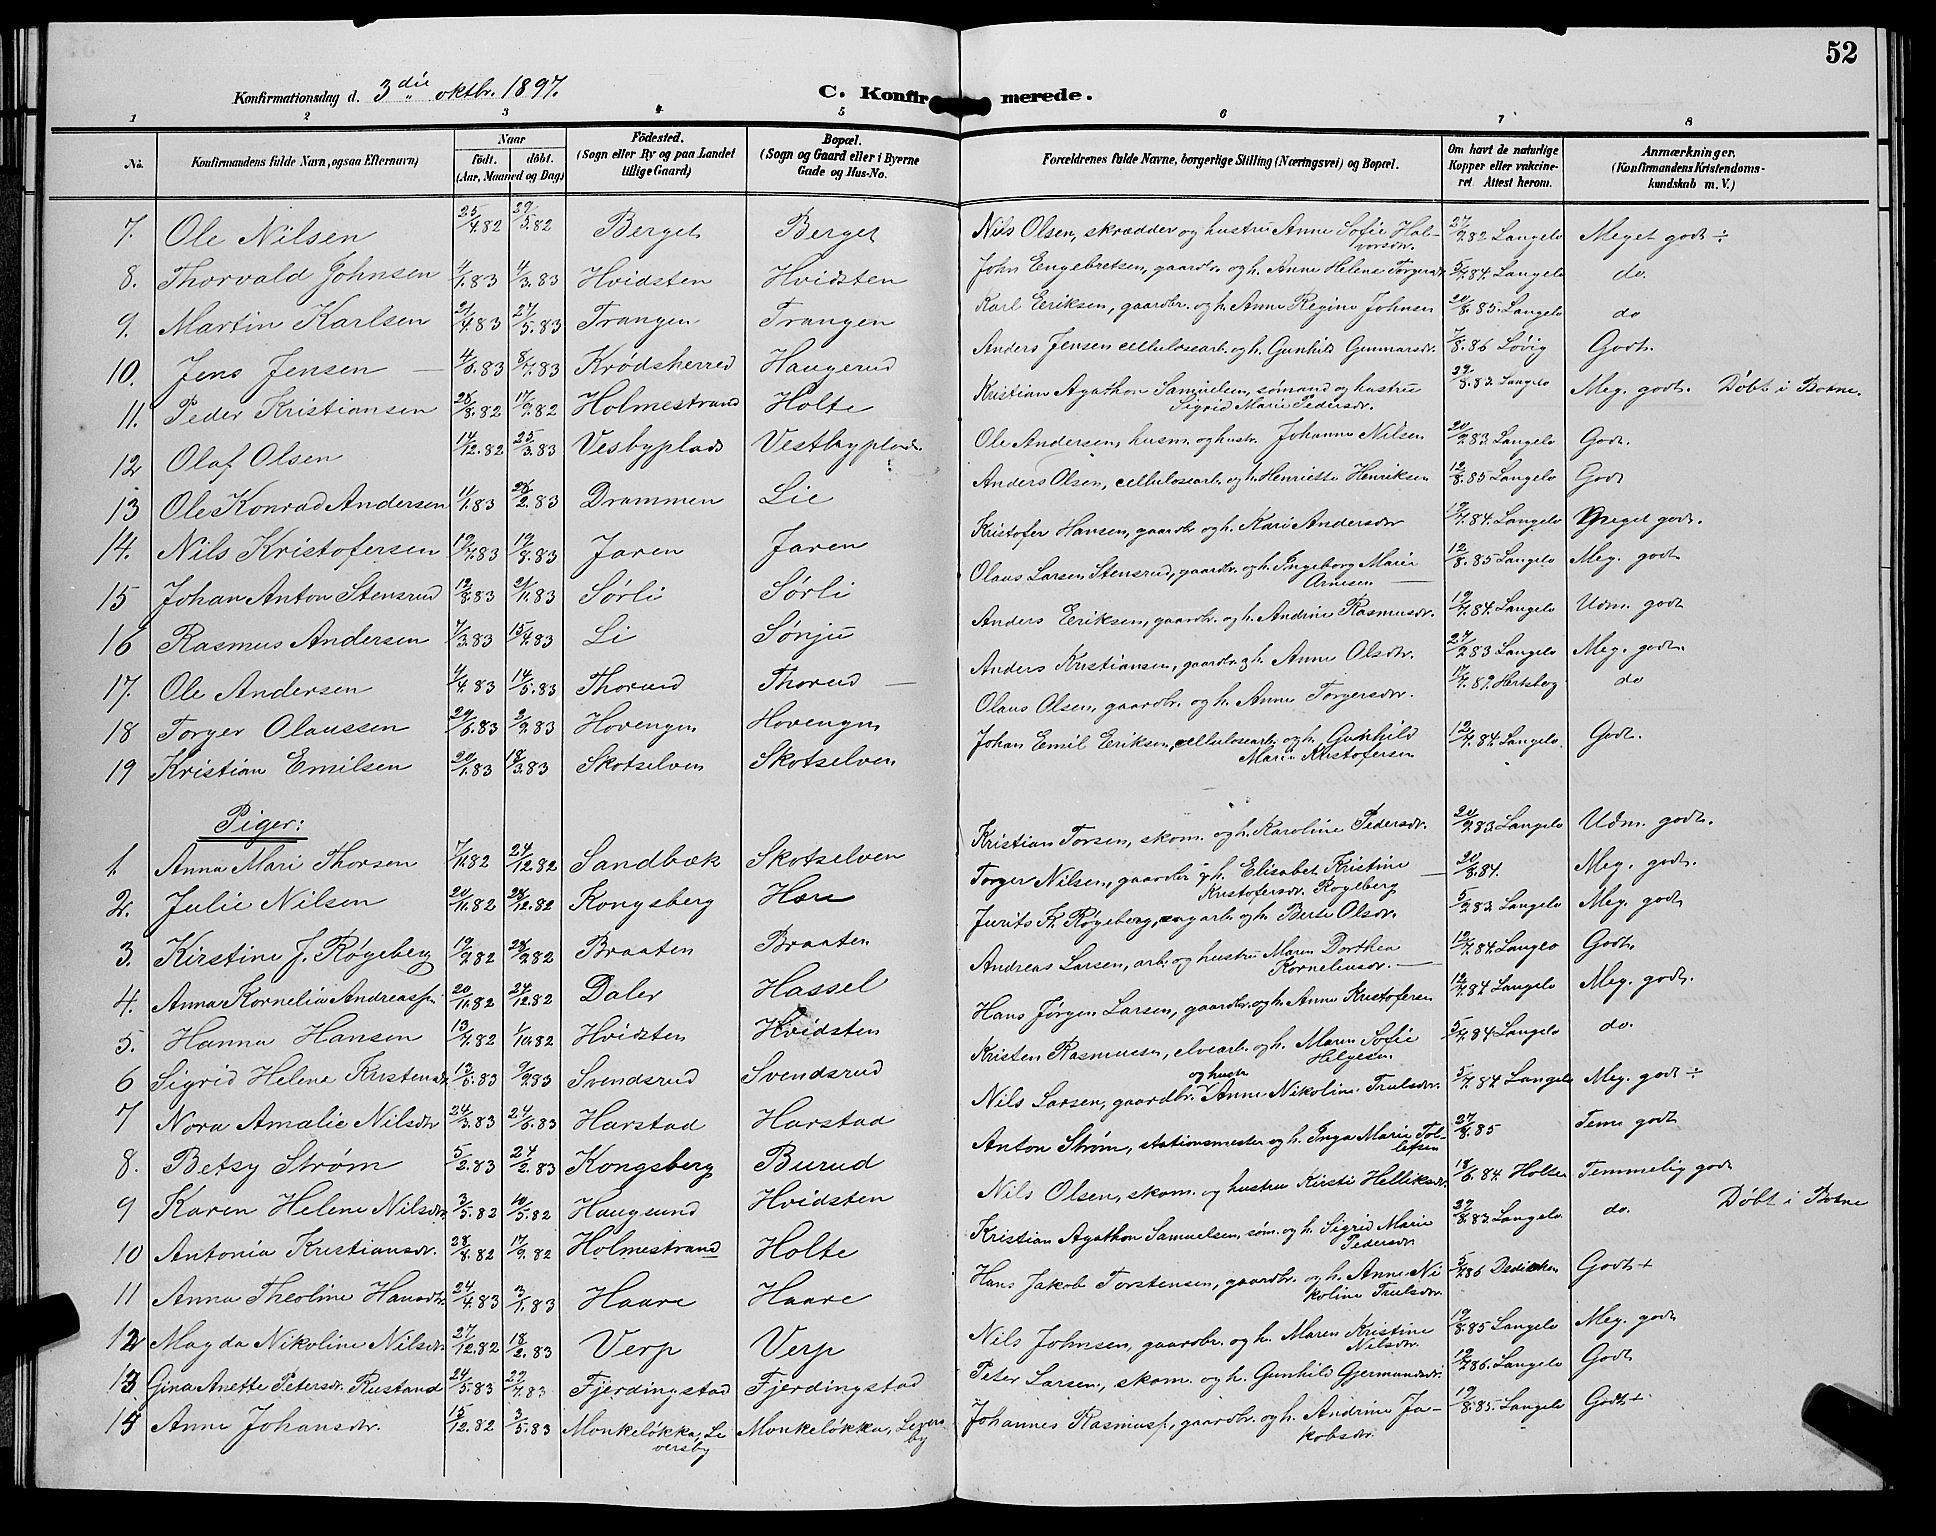 52
Konfirmationsdag d. 3die oktbr. 1897.
C. Konfirmerede.
1 2 3 4 5 6 7 8
No. Konfirmandens fulde Navn, ogsaa Efternavn) Naar født. døbt. (Aar, Maaned og Dag) Födested. (Sogn eller By og paa Landet tillige Gaard) Bopæl. (Sogn og Gaard eller i Byerne Gade og Hus-No. Forældrenes fulde Navne, borgerlige Stilling (Næringsvei) og Bopæl. Om havt de naturlige Kopper eller vakcineret Attest herom. Anmærkninger. (Konfirmandens Kristendomskundskab m. V.)
7. Ole Nilsen 25/4.82 29/5.82 Berget Berget Nils Olsen, skrædder og hustru Anne Sofie Halvorsdr. 27/9.82 Langelo Meget godt ÷
8. Thorvald Johnsen 4/1.83 4/3.83 Hvidsten Hvidsten John Engebretsen, gaardbr. og h. Anne Helene Torgersdr. 5/7.84. Langelo do.
9. Martin Karlsen 21/4.83 27/5.83 Trangen Trangen Karl Eriksen, gaardbr. og h. Anne Regine Johnsen 20/8.85. Langelo do
10. Jens Jensen 4/6.83 8/7.83 Krødsherred Haugerud Anders Jensen cellulosearb. og h. Gunhild Gunnarsdr. 7/8.86 Løvig Godt.
11. Peder Kristiansen 28/8.82 17/9.82 Holmestrand Holte Kristian Agathon Samuelsen, sømand og hustru Sigrid Marie Pedersdr. 29/8.83. Langelo Meg. godt. Døbt i Botne.
12 Olaf Olsen 14/12.82 25/3.83 Vesbyplads Vestbyplads Ole Andersen, husm. og hustr. Johanne Nilsen 20/9.83. Langelo Godt.
13 Ole Konrad Andersen 11/1.83 26/2.83 Drammen Lie Anders Olsen, cellulosearb. og h. Henriette Henriksen 12/8.85 Langelo Godt
14. Nils Kristofersen 19/7.83 19/8.83 Jaren Jaren Kristofer Hansen, gaardbr og h. Kari Andersdr 12/7.84. Langelo Meget godt.
15 Johan Anton Stensrud 12/8.83 21/11.83 Sørli Sørli Olaus Larsen Stensrud, gaardbr. og h. Ingeborg Marie Arnesen 12/8.85 Langelo Meg. godt
16 Rasmus Andersen 7/3.83 15/4.83 Li Sønju Anders Eriksen, gaardbr. og h. Andrine Rasmusdr. 12/7.84. Langelo Udm. godt
17. Ole Andersen 4/4.83 14/5.83 Thorud Thorud Anders Kristiansen, gaardbr. og h. Anne Olsdtr. 27/9.83 Langelo Meg. godt.
18 Torger Olaussen 29/6.83 2/9.83 Hovengen Hovengen Olaus Olsen, gaardbr. og h. Anne Torgersdr. 17/7.89. Hertsberg do
19 Kristian Emilsen 20/1.83 18/3.83 Skotselven Skotselven Johan Emil Eriksen, cellulosearb. og h. Gunhild Marie Kristofersen 12/7.84. Langelo. Godt.
Piger:
1. Anna Mari Thorsen 7/11.82 24/12.82 Sandbæk Skotselven Kristian Torsen, skom. og h. Karoline Pedersdr. 20/9.83. Langelo Udm. godt.
2. Julie Nilsen 20/11.82 28/12.82 Kongsberg Torger Nilsen, gaardbr og h. Elisabet Kristine Kristofersdr. Røgeberg 20/8.84. Meg. godt.
3. Kirstine J. Røgeberg 19/7.82 28/9.82 Braaten Braaten Jurits K. Røgeberg, og h. Berte Olsdr. 5/9.83. Langelo Meg. godt
4. Anna Kornelia Andreasss. 20/11.82 24/12.82 Daler Hassel Andreas Larsen, arb. og hustru Maren Dorthea Korneliusdr. 12/7.84. Langelo Godt.
5. Hanna Hansen 13/7.82 1/10.82 Hvidsten Hvidsten Hans Jørgen Larsen, gaardbr. og h. Anne Kristofersen 12/7.84 Langelo Meg. godt.
6 Sigrid Helene Kristensdr. 13/5.83 9/9.83 Svendsrud Svendsrud Kristen Rasmussen, elvearb. og h. Maren Sofie Helgesen 5/7.84. Langelo do.
7 Nora Amalie Nilsdtr 24/3.83 24/6.83 Harstad Harstad Nils Larsen, gaardbr. og hustr Anne Nikoline Trulsdr. 5/7.84 Langelo Meg. godt ÷
8. Betsy Strøm 5/2.83 24/2.83 Kongsberg Burud Anton Strøm, stationsmester og h. Inga Marie Tollefsen 27/8.85 Tem. godt
9 Karen Helene Nilsdtr. 3/5.82 10/5.82 Haugsund Hvidsten Nils Olsen, skom. og hustru Kirsti Helliksdr. 18/6.84. Holter Temmelig godt
10 Antonia Kristiansdr. 28/8.82 17/9.82 Holmestrand Holte Kristian Agathon Samuelsen, søm. og h. Sigrid Marie Pedersdr 29/8.83. Langelo. do. Døbt i Botne
11 Anna Theoline Hansdtr. 24/4.83 3/1.83 Haare Haare Hans Jakob Torstensen, gaardbr. og h. Anne Nikoline Trulsdr. 5/7.86 Dedichen Godt +
12 Magda Nikoline Nilsdr. 27/12.82 18/2.83 Verp Verp Nils Johnsen, gaardbr. og h. Maren Kristine Nilsdtr. 12/8.85 Langelo Meg. godt
13 Gina Anette Petersdr. Rustand 24/5.83 22/7.83 Fjerdingstad Fjerdingstad Peter Larsen, skom. og h. Gunhild Gjermundsdr. 12/7.86. Langelo Godt
14 Anne Johansdtr. 15/12.82 3/5.83 Monkeløkka, Leversby Monkeløkka, Leversby Johannes Rasmuss., gaardbr. og h. Andrine Jakobsdr. 19/8.85. Langelo Godt +